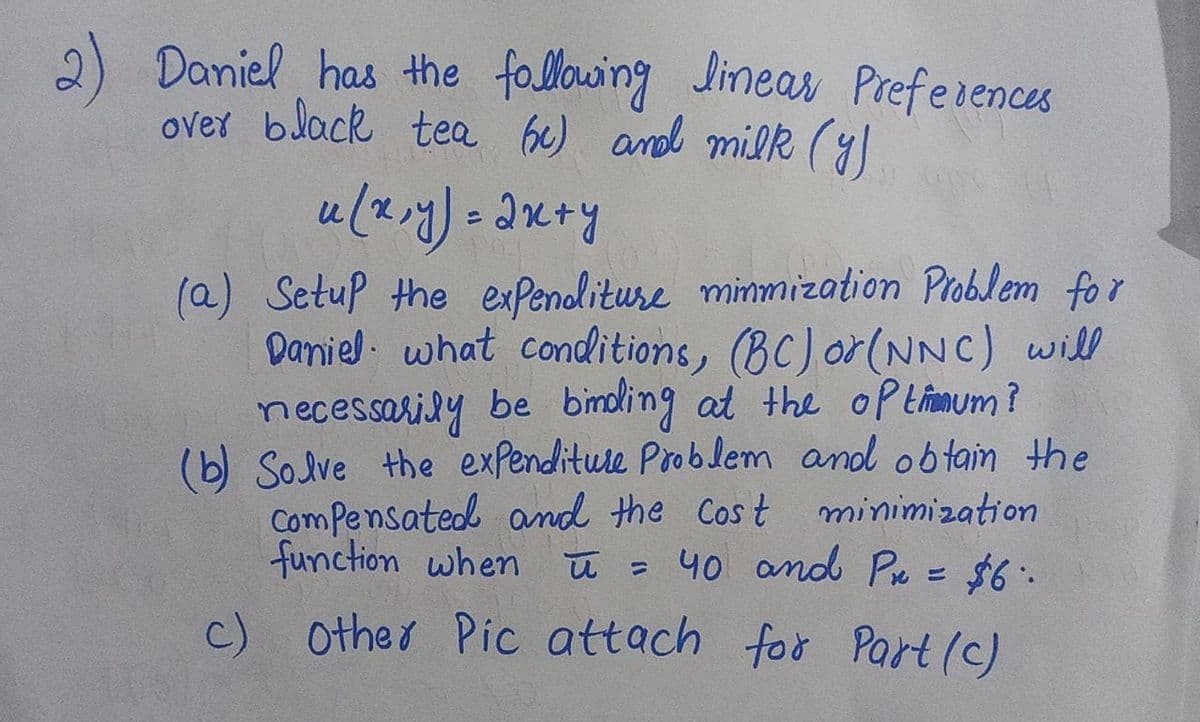 2) Daniel has the following linear Preferences
over black tea (x) and milk (y)
u(x,y) = 2x+y
(a) Setup the expenditure minmization Problem for
Daniel. what conditions, (BC) or (NNC) will
necessarily be binding at the optimum?
(b) Solve the expenditure Problem and obtain the
compensated and the cost minimization
function when ū = 40 and Px = $6.
c) other Pic attach for Part (c)